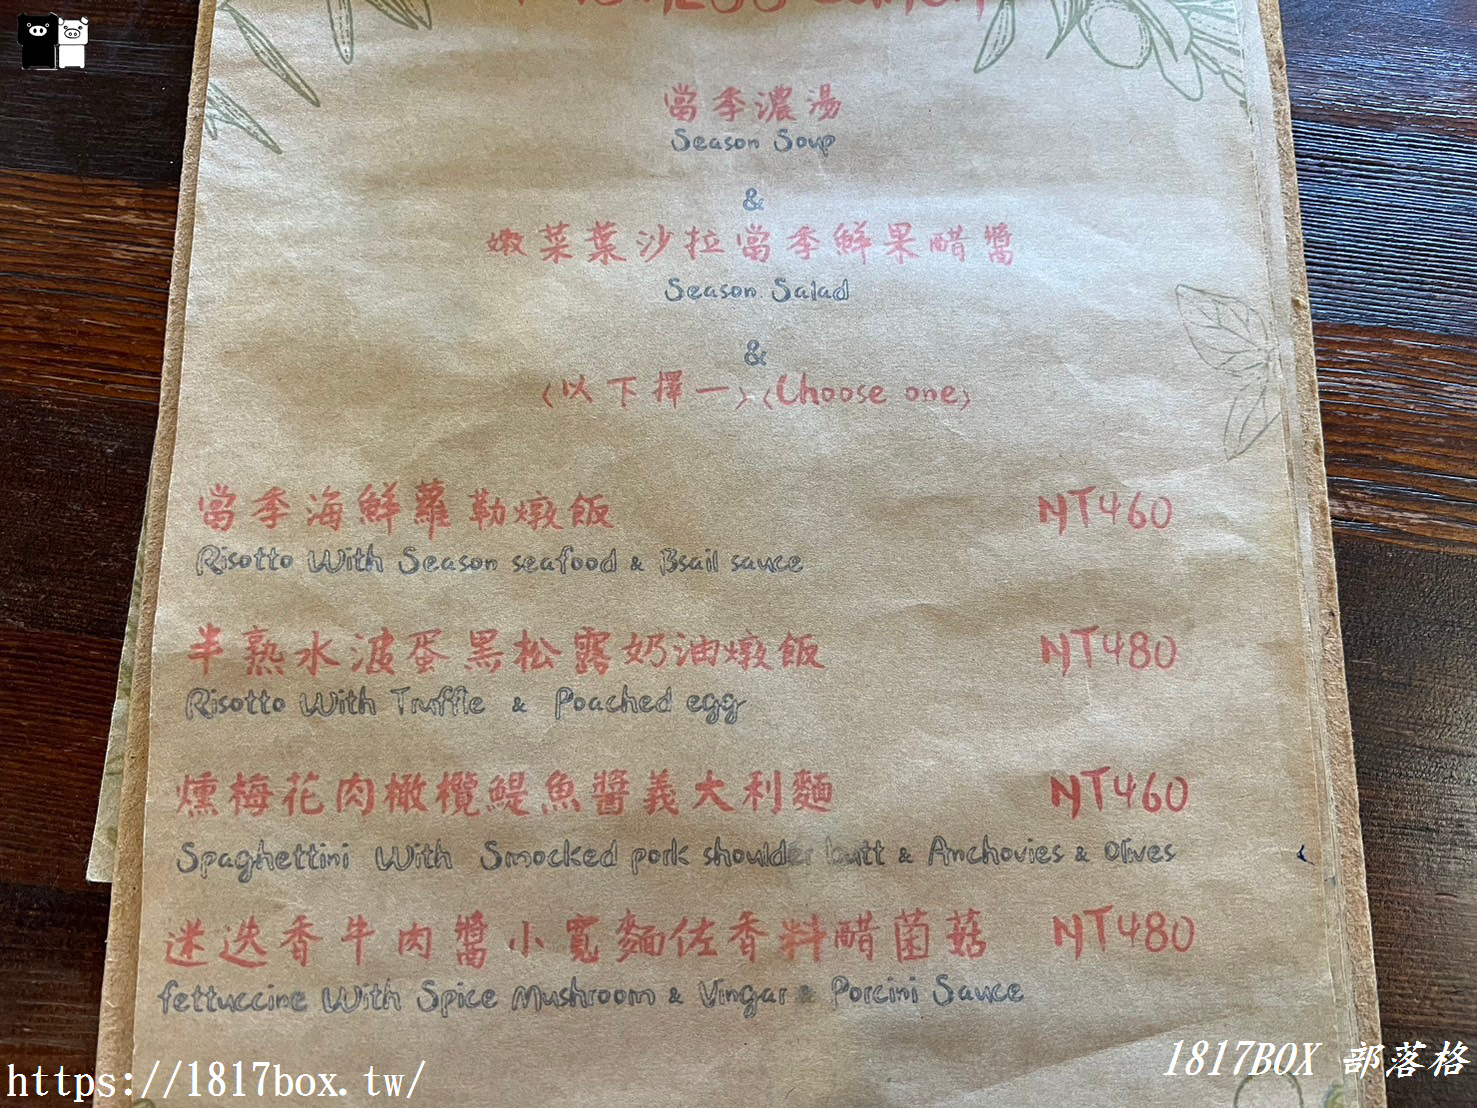 當季濃湯
Season Soup
&
嫩菜葉沙拉當季鮮果醋醬
Season Salad
&
〈以下擇一〉〈Choose one〉
當季海鮮蘿勒燉飯 NT460
Risotto With Season seafood & Bsail sauce
半熟水波蛋黑松露奶油燉飯 NT480
Risotto With Truffle & Poached egg
燻梅花肉橄欖鯷魚醬義大利麵 NT460
Spaghettini With Smocked pork shoulder butt & Anchovies & Olives
迷迭香牛肉醬小寬麵佐香料醋菌菇 NT480
fettuccine With Spice Mushroom & Vingar & Porcini Sauce
https://1817box.tw/
1817BOX 部落格